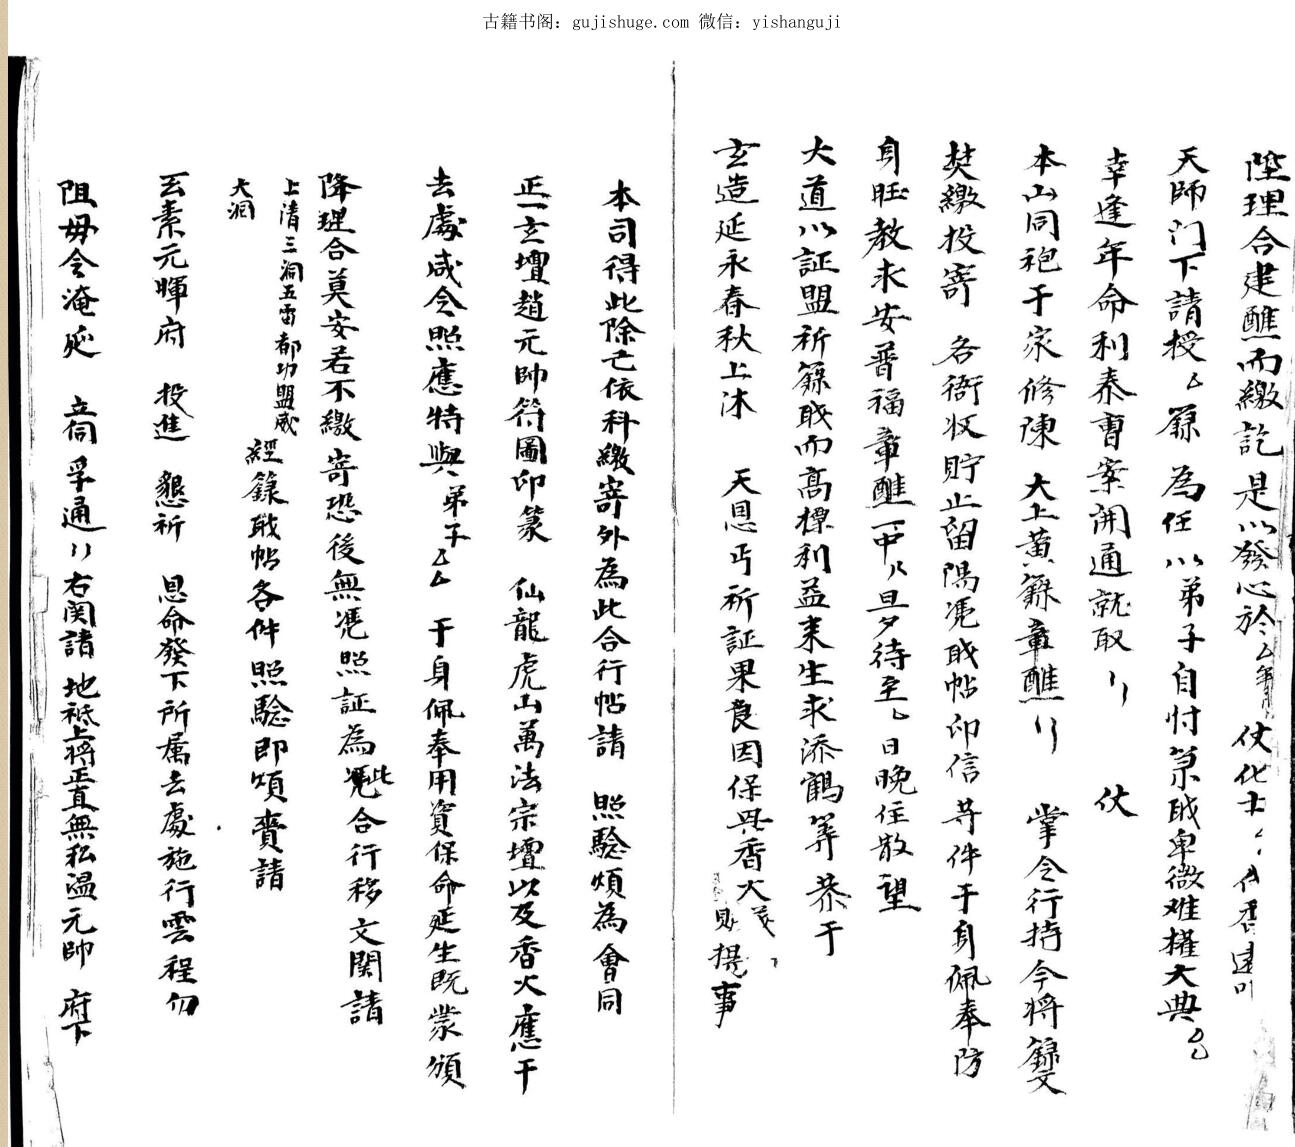 古籍书阁：gujishuge.com 微信：yishanguji
陞理合建醮而繳訖是以發心於厶年月 仗化士
天師门下請授厶籙 為任以弟子自忖箓职卑微难擢大典
幸逢年命利泰曹案開通就取 伏
本山同袍于家修陳 大上黃籙章醮 掌令行持今将籙文
焚繳投寄 各衙收貯止留陽凭职帖印信等件于身佩奉防
身旺教求安普福章醮一中 旦夕待至 日晚任散望
大道以証盟祈籙职而高標利益来生求添鶴筭恭于
玄造延永春秋上沐 天恩丐祈証果良因保畀香火 提事
本司得此除已依科繳寄外為此合行帖請 照騐煩為會同
正一玄壇趙元帥符圖印篆 仙龍虎山萬法宗壇以及香火應干
去處咸令照應特與弟子厶 于身佩奉用資保命延生既蒙頒
降理合奠安若不繳寄恐後無凭照証為此凴合行移文関請
上清三洞五雷都功盟威
大洞
經籙职帖各件照騐即頒賫請
玄素元暉府 投進 懇祈 恩命發下所属去處施行雲程勿
阻毋令淹延 立伺孚通 右関請地祇上将正直無私温元帥 府下